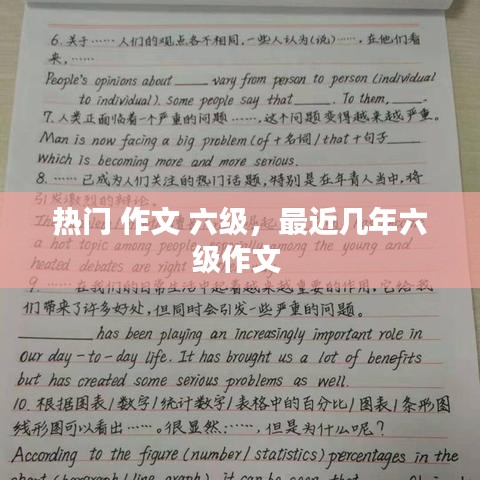 6.关于……人们的观点各不相同,一些人认为(说)……,在他们看
来,……
People's opinions about ____ vary from person to person (individual
to individual). some people say that ____. To them, ____.
7.人类正面临着一个严重的问题……,这个问题变得越来越严重。
Man is now facing a big problem (of+名词/that+句子____
which is becoming more and more serious.
8.……已成为人们关注的热门话题,特别是在年青人当中,将
引发激烈的辩论。
热门 作文 六级，最近几年六
级作文
a hot topic among people, especially among the young
debates are right
9.……在我们的日常生活中起着越来越重要的作用,它给我
们带来了许多好处,但同时会引发一些严重的问题。
____ has been playing an increasingly important role in
our day-to-day life. It has brought us a lot of benefits
but has created some serious problems as well.
10.根据图表/数字/统计数字/表格中的百分比/图表/条形图
线形图可以看出……。很显然,……,但是为什么呢?
According to the figure (number/statistics) percentages in the